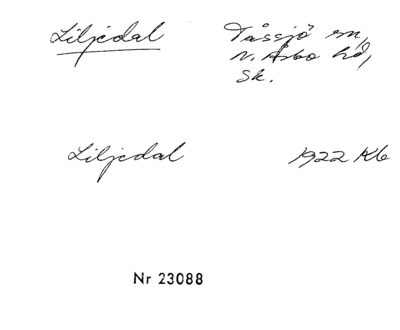 Liljedal Tåssjö sn,
N. Åsbo hd,
Sk.
Liljedal 1922 Kb
Nr 23088